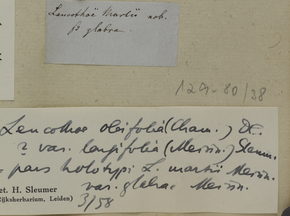 Leucothoë Martii nob.
β glabra.
129-80/38
Leucothoe oleifolia (Cham.) DC.
? var. longifolia (Meissn.) Sleum.
pars holotypi L. martii Meissn.
var. glabra Meissn.
et. H. Sleumer
Rijksherbarium, Leiden)
3/58